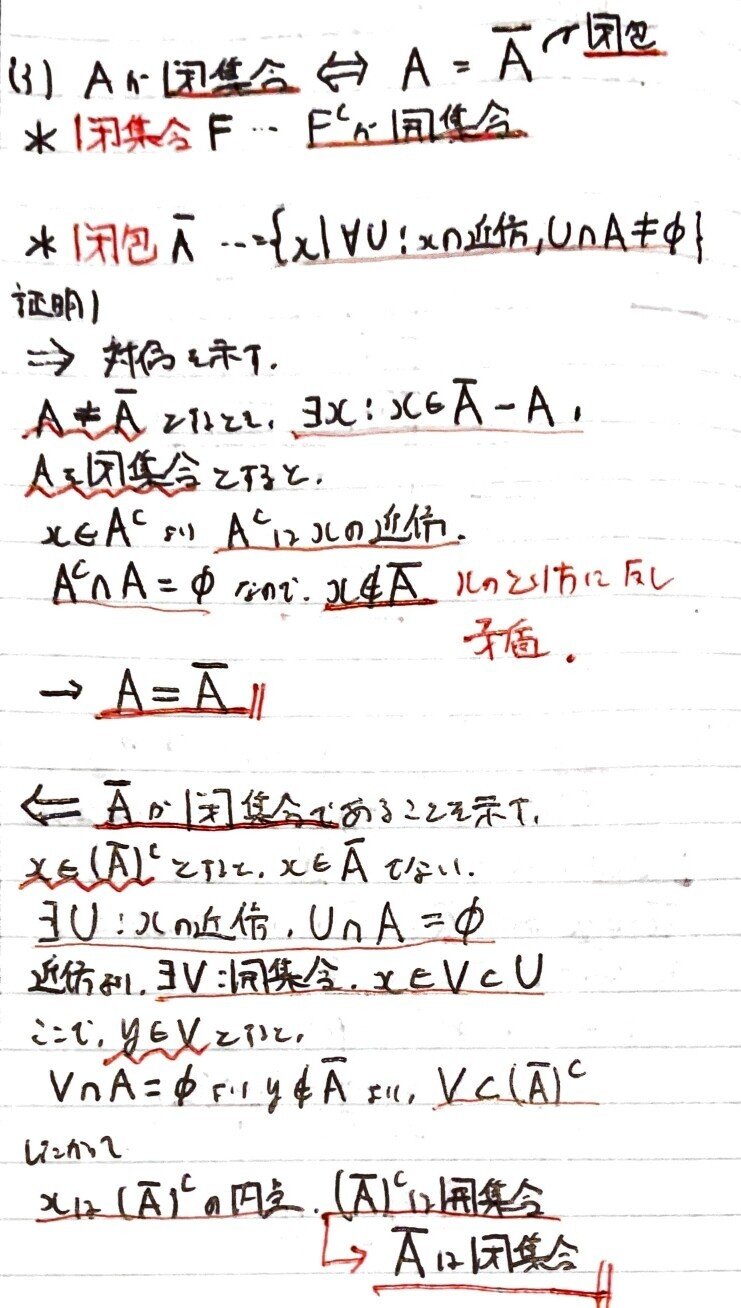 (3) Aが閉集合 ⇔ A = A̅ 閉包
* 閉集合 F … Fᶜが開集合
* 閉包 A̅ …={x|∀U:xの近傍,U∩A≠φ}
証明)
⇒ 対偶を示す.
A≠A̅ とすると, ∃x:x∈A̅-A,
Aを閉集合とすると,
x∈Aᶜ より Aᶜはxの近傍.
Aᶜ∩A=φ なので, x∉A̅ xのとり方に反し
矛盾.
→ A=A̅
⇐ A̅が閉集合であることを示す.
x∈(A̅)ᶜとすると, x∈A̅ でない.
∃U:xの近傍, U∩A=φ
近傍より, ∃V:開集合, x∈V⊂U
ここで, y∈Vとすると,
V∩A=φより y∉A̅ より, V⊂(A̅)ᶜ
したがって
xは(A̅)ᶜの内点, (A̅)ᶜは開集合
↳ A̅は閉集合